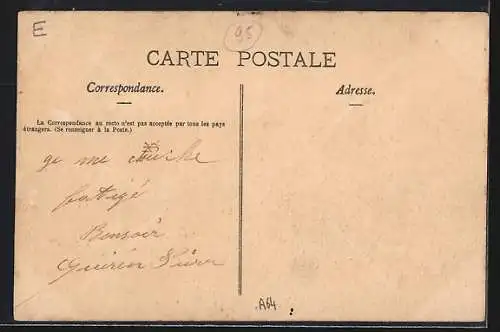 E
95
CARTE POSTALE
Correspondance.
Adresse.
La Correspondance au recto n'est pas acceptée par tous les pays
étrangers. (Se renseigner à la Poste.)
ge me couche
fatigé
Bonsoir
Guérin
A64